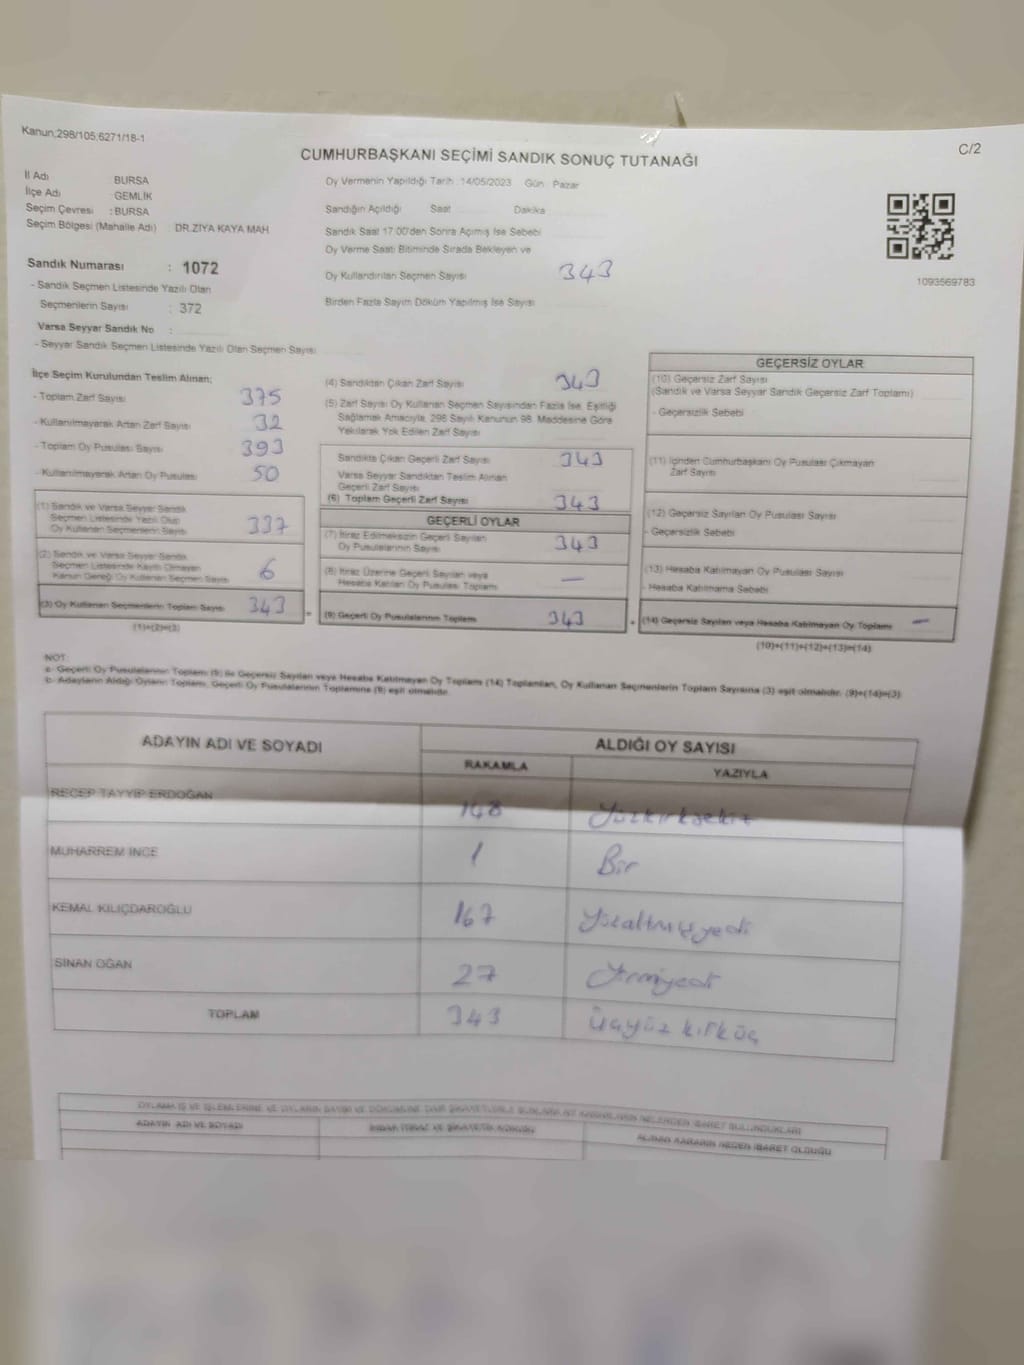 Kanun;298/105,6271/18-1
C/2
CUMHURBAŞKANI SEÇİMİ SANDIK SONUÇ TUTANAĞI
İl Adı BURSA
İlçe Adı : GEMLİK
Seçim Çevresi : BURSA
Seçim Bölgesi (Mahalle Adı) : DR.ZİYA KAYA MAH.
Sandık Numarası : 1072
- Sandık Seçmen Listesinde Yazılı Olan
Seçmenlerin Sayısı : 372
Varsa Seyyar Sandık No :
- Seyyar Sandık Seçmen Listesinde Yazılı Olan Seçmen Sayısı
Oy Vermenin Yapıldığı Tarih : 14/05/2023 Gün : Pazar
Sandığın Açıldığı Saat Dakika
Sandık Saat 17.00'den Sonra Açılmış İse Sebebi
Oy Verme Saati Bitiminde Sırada Bekleyen ve
Oy Kullandırılan Seçmen Sayısı 343
Birden Fazla Sayım Döküm Yapılmış İse Sayısı
1093569783
İlçe Seçim Kurulundan Teslim Alınan;
- Toplam Zarf Sayısı 375
- Kullanılmayarak Artan Zarf Sayısı 32
- Toplam Oy Pusulası Sayısı 393
- Kullanılmayarak Artan Oy Pusulası 50
(1) Sandık ve Varsa Seyyar Sandık
Seçmen Listesinde Yazılı Olup
Oy Kullanan Seçmenlerin Sayısı 337
(2) Sandık ve Varsa Seyyar Sandık
Seçmen Listesinde Kayıtlı Olmayan
Kanun Gereği Oy Kullanan Seçmen Sayısı 6
(3) Oy Kullanan Seçmenlerin Toplam Sayısı 343 =
(1)+(2)=(3)
(4) Sandıktan Çıkan Zarf Sayısı 343
(5) Zarf Sayısı Oy Kullanan Seçmen Sayısından Fazla İse, Eşitliği
Sağlamak Amacıyla, 298 Sayılı Kanunun 98. Maddesine Göre
Yakılarak Yok Edilen Zarf Sayısı
Sandıkta Çıkan Geçerli Zarf Sayısı 343
Varsa Seyyar Sandıktan Teslim Alınan
Geçerli Zarf Sayısı
(6) Toplam Geçerli Zarf Sayısı 343
GEÇERLİ OYLAR
(7) İtiraz Edilmeksizin Geçerli Sayılan
Oy Pusulalarının Sayısı 343
(8) İtiraz Üzerine Geçerli Sayılan veya
Hesaba Katılan Oy Pusulası Toplamı —
(9) Geçerli Oy Pusulalarının Toplamı 343 +
GEÇERSİZ OYLAR
(10) Geçersiz Zarf Sayısı
(Sandık ve Varsa Seyyar Sandık Geçersiz Zarf Toplamı)
- Geçersizlik Sebebi
(11) İçinden Cumhurbaşkanı Oy Pusulası Çıkmayan
Zarf Sayısı
(12) Geçersiz Sayılan Oy Pusulası Sayısı
- Geçersizlik Sebebi
(13) Hesaba Katılmayan Oy Pusulası Sayısı
- Hesaba Katılmama Sebebi
(14) Geçersiz Sayılan veya Hesaba Katılmayan Oy Toplamı —
(10)+(11)+(12)+(13)=(14)
NOT:
a- Geçerli Oy Pusulalarının Toplamı (9) ile Geçersiz Sayılan veya Hesaba Katılmayan Oy Toplamı (14) Toplamları, Oy Kullanan Seçmenlerin Toplam Sayısına (3) eşit olmalıdır. (9)+(14)=(3)
b- Adayların Aldığı Oyların Toplamı, Geçerli Oy Pusulalarının Toplamına (9) eşit olmalıdır.
ADAYIN ADI VE SOYADI ALDIĞI OY SAYISI
RAKAMLA YAZIYLA
RECEP TAYYİP ERDOĞAN 148 Yüzkırksekiz
MUHARREM İNCE 1 Bir
KEMAL KILIÇDAROĞLU 167 Yüzaltmışyedi
SİNAN OĞAN 27 Yirmiyedi
TOPLAM 343 Üçyüz kırküç
ADAYIN ADI VE SOYADI
ALINAN KARARIN NEDEN İBARET OLDUĞU